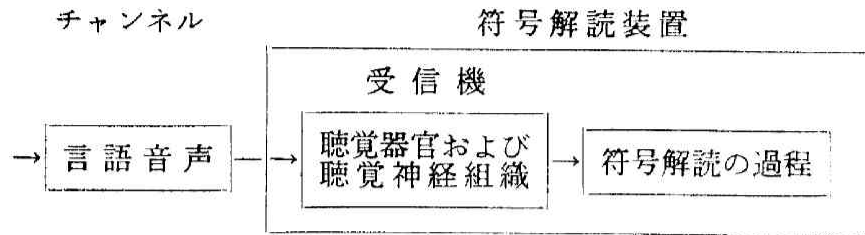 チャンネル
符号解読装置
受信機
→ 言語音声 → 聴覚器官および
聴覚神経組織 → 符号解読の過程